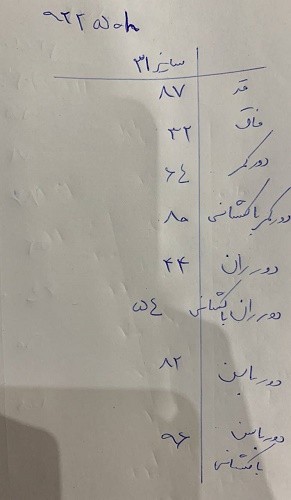 ۹۲۲ woh
سایز ۳۱
قد ۸۷
فاق ۳۲
دور کمر ۶٤
دور کمر باکشانی ۸۰
دور ران ۴۴
دور ران باکشانی ۵٤
دور باسن ۸۲
دور باسن باکشانی ۹۶